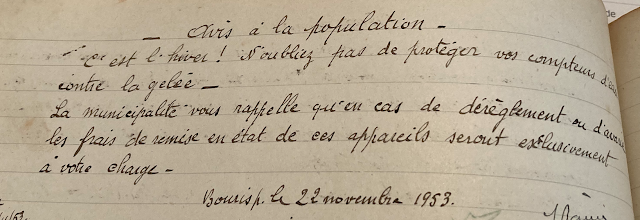 — Avis à la population —
C'est l'hiver ! N'oubliez pas de protéger vos compteurs d'eau
contre la gelée —
La municipalité vous rappelle qu'en cas de dérèglement ou d'
les frais de remise en état de ces appareils seront exclusivement
à votre charge —
Bourisp. le 22 novembre 1953.